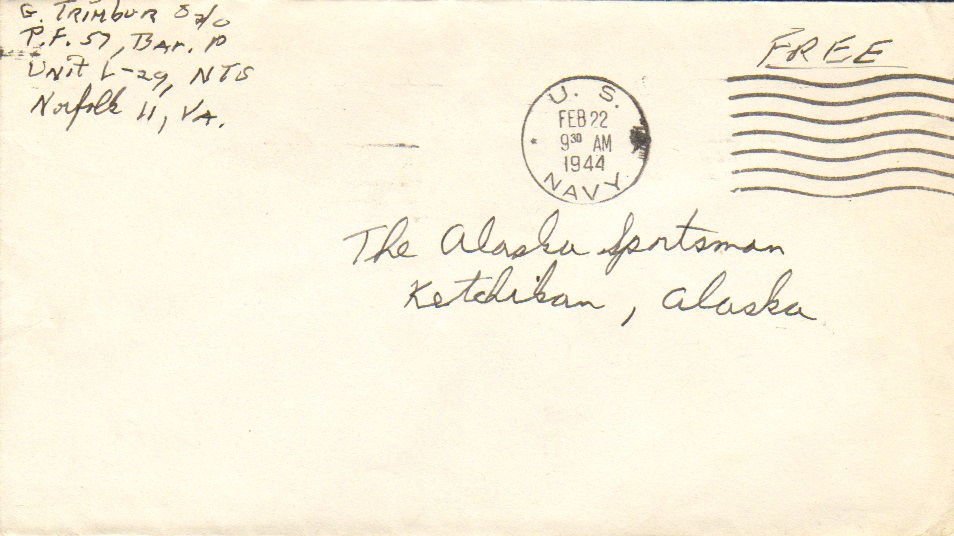 G. Trimbur S2/c
P.F. 57, Bar. P
Unit L-29, NTS
Norfolk 11, VA.
FREE
U. S.
FEB 22
9 30 AM
1944
NAVY
The Alaska Sportsman
Ketchikan, Alaska